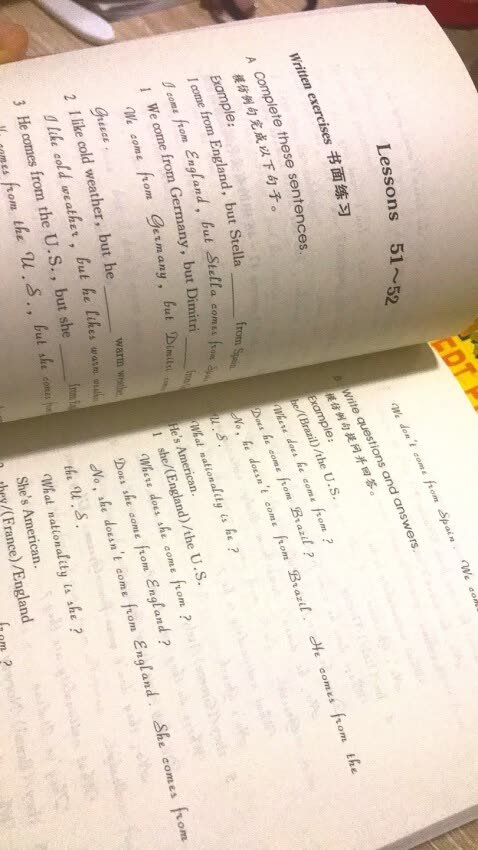 Lessons 51～52
Written exercises 书面练习
A Complete these sentences.
模仿例句完成以下句子。
Example:
I come from England, but Stella ______ from Spain.
I come from England, but Stella comes from
1 We come from Germany, but Dimitri ______
We come from Germany, but Dimitri
Greece.
2 I like cold weather, but he ______ warm
I like cold weather, but he likes warm
3 He comes from the U.S., but she ______
comes from the U.S., but she comes
We don't come from Spain. We
Write questions and answers.
模仿例句提问并回答。
Example:
he/(Brazil)/the U.S.
Where does he come from?
Does he come from Brazil?
No, he doesn't come from Brazil. He comes from the
U.S.
What nationality is he?
He's American.
1 she/(England)/the U.S.
Where does she come from?
Does she come from England?
No, she doesn't come from England. She comes from
the U.S.
What nationality is she?
She's American.
they/(France)/England
from?